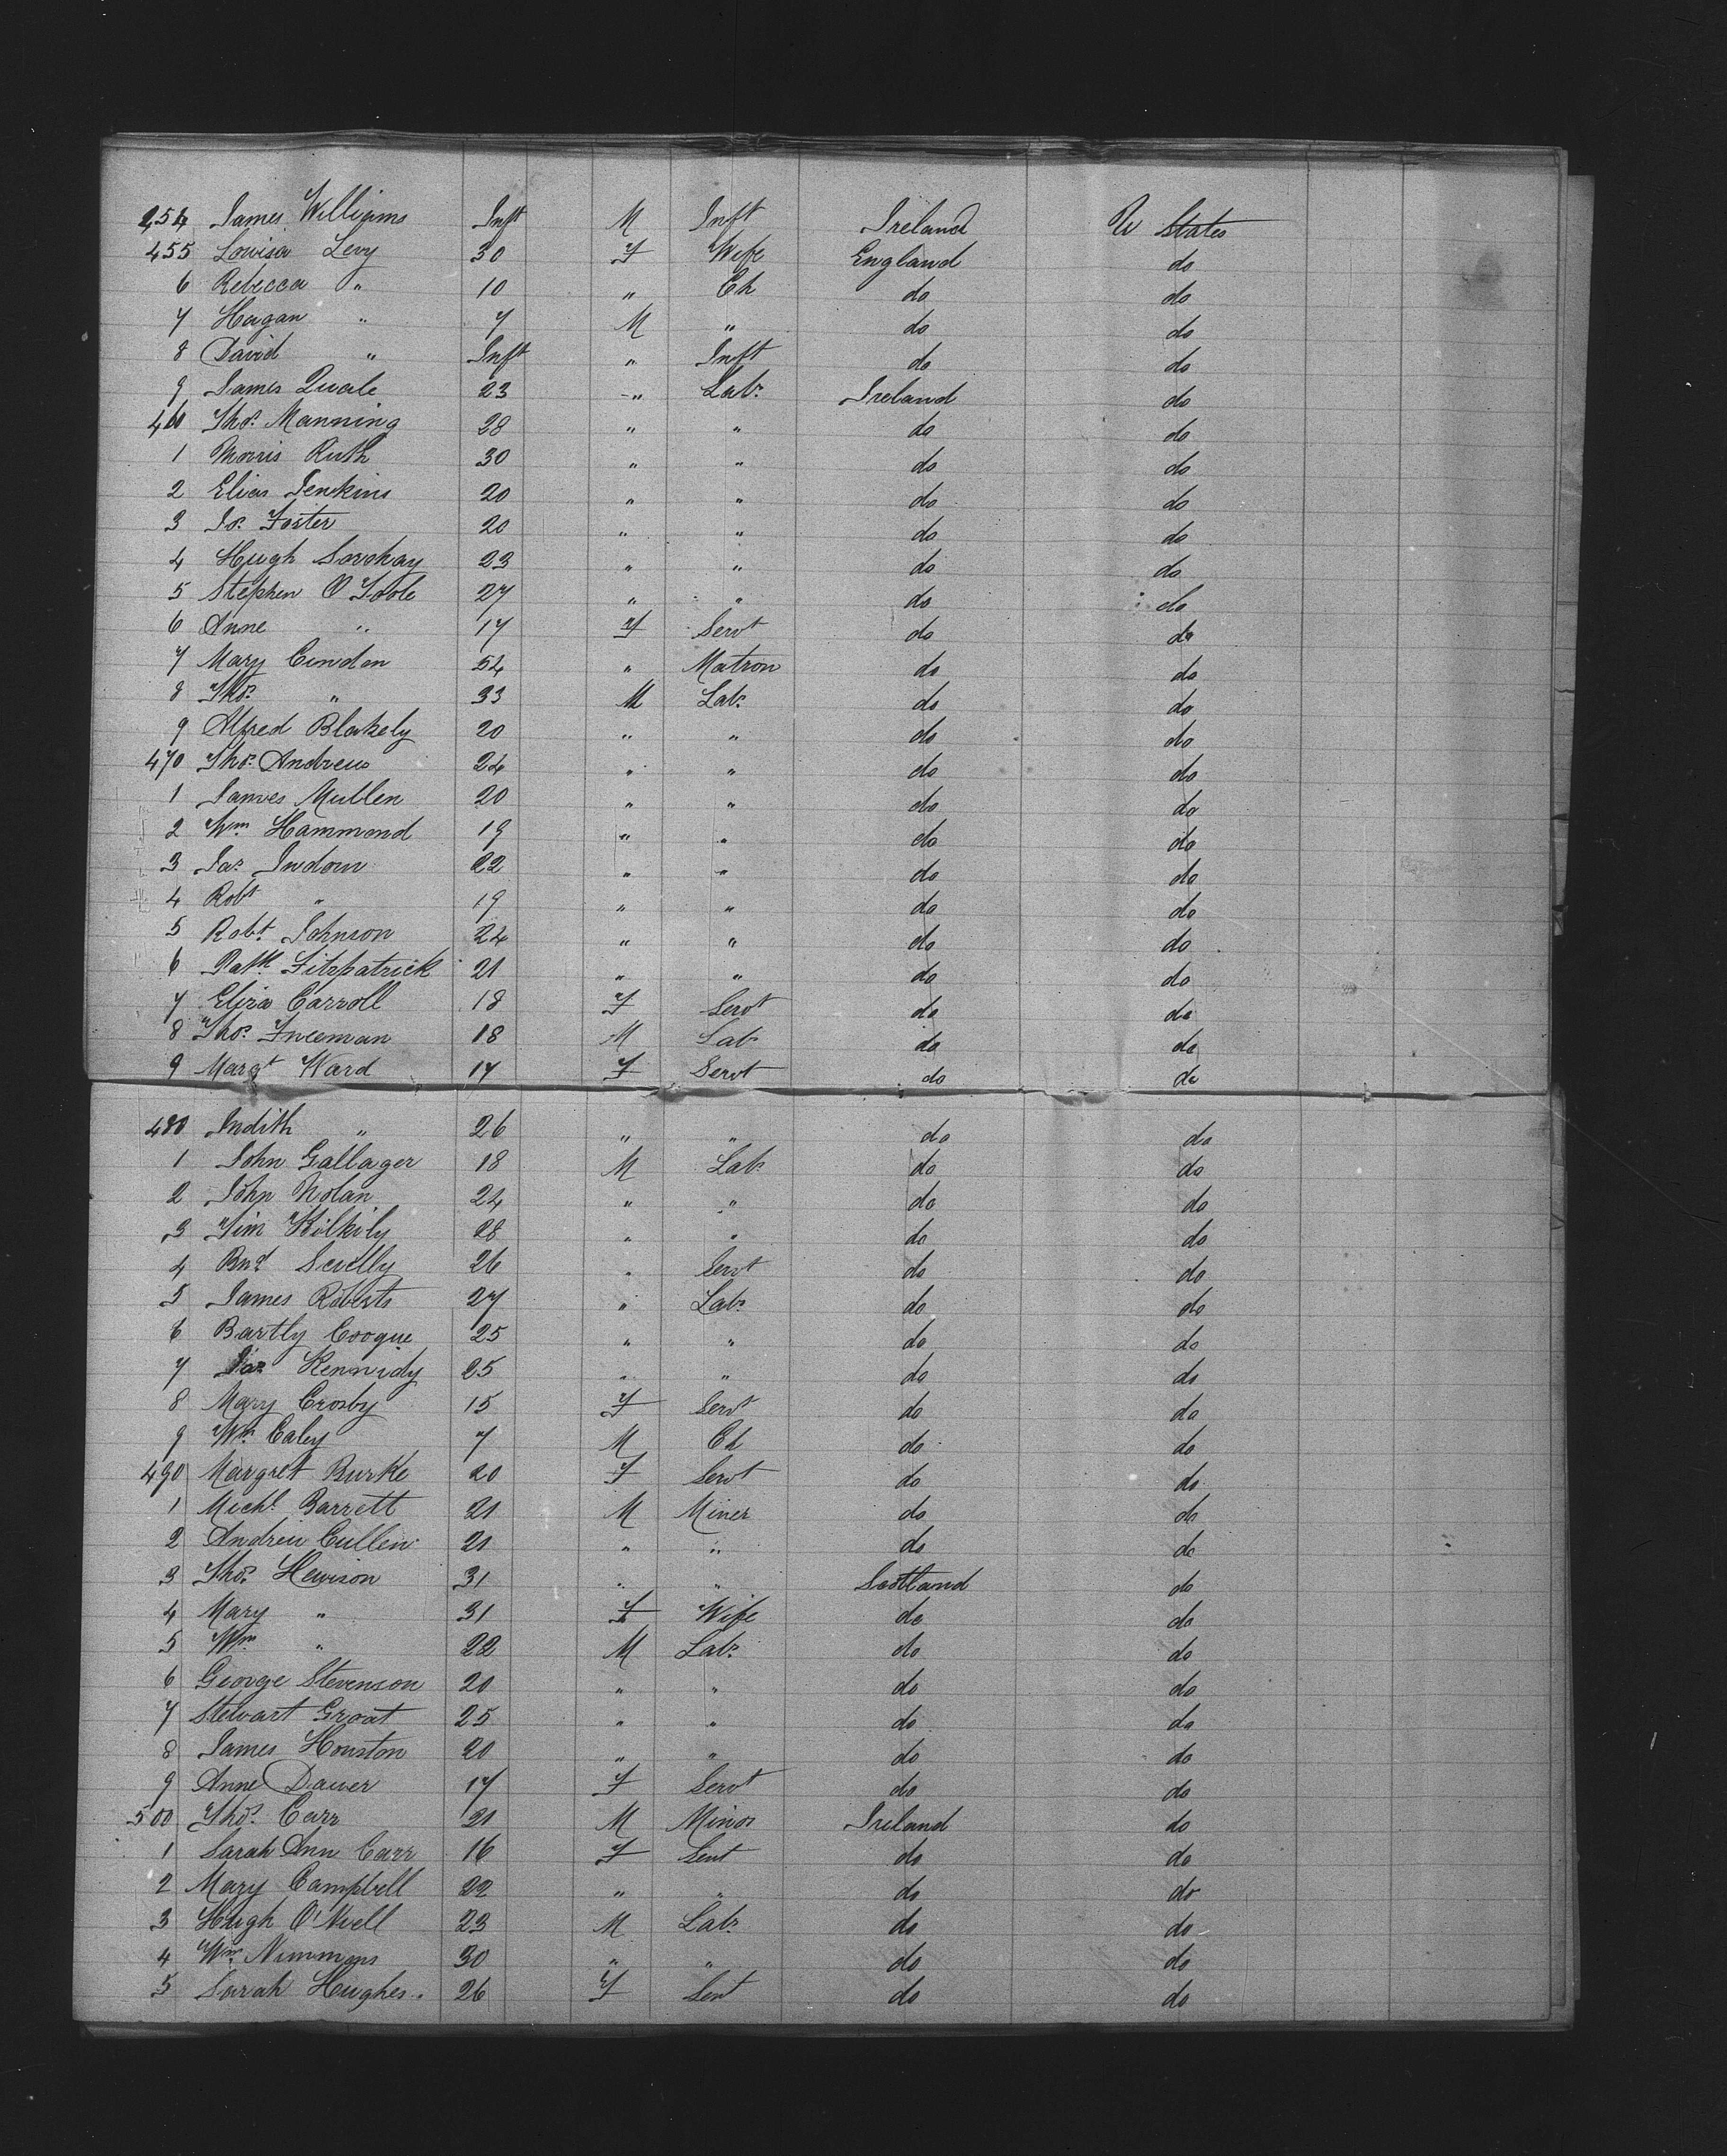 454 James Williams Inft M Inft Ireland U States
455 Louisa Levy 30 F Wife England do
6 Rebecca " 10 " Ch do do
7 Hagan " 7 M " do do
8 David " Inft " Inft do do
9 James Quale 23 " Labr Ireland do
460 Thos. Manning 28 " " do do
1 Morris Ruth 30 " " do do
2 Elias Jenkins 20 " " do do
3 Jos. Foster 20 " " do do
4 Hugh 23 " " do do
5 Stephen O'Toole 27 " " do do
6 Anne " 17 F Servt do do
7 Mary Cundon 54 " Matron do do
8 Thos. " 33 M Labr do do
9 Alfred Blakely 20 " " do do
470 Thos. Andrews 24 " " do do
1 James Mullen 20 " " do do
2 Wm Hammond 19 " " do do
3 Jas. 22 " " do do
4 Robt " 19 " " do do
5 Robt. Johnson 24 " " do do
6 Patk Fitzpatrick 21 " " do do
7 Eliza Carroll 18 F Servt do do
8 Thos. Freeman 18 M Labr do do
9 Margt Ward 17 F Servt do do
480 Judith " 26 " " do do
1 John Gallager 18 M Labr do do
2 John Nolan 24 " " do do
3 Tim Kilkily 28 " " do do
4 Bnd 26 " Servt do do
5 James Roberts 27 " Labr do do
6 Bartly Coogue 25 " " do do
7 Jas Kennidy 25 " " do do
8 Mary Crosby 15 F Servt do do
9 Wm. Caley 7 M Ch do do
490 Margret Burke 20 F Servt do do
1 Michl. Barrett 21 M Miner do do
2 Andrew Cullen 21 " " do do
3 Thos. Hewison 31 " " Scotland do
4 Mary " 31 F Wife do do
5 Wm " 22 M Labr do do
6 George Stevenson 20 " " do do
7 Stewart Groat 25 " " do do
8 James Houston 20 " " do do
9 Anne Dawer 17 F Servt do do
500 Thos. Carr 21 M Minor Ireland do
1 Sarah Ann Carr 16 F Sevt do do
2 Mary Campbell 22 " " do do
3 Hugh O'Niell 23 M Labr do do
4 Wm. Nimmons 30 " " do do
5 Sarah Hughes 26 F Sevt do do